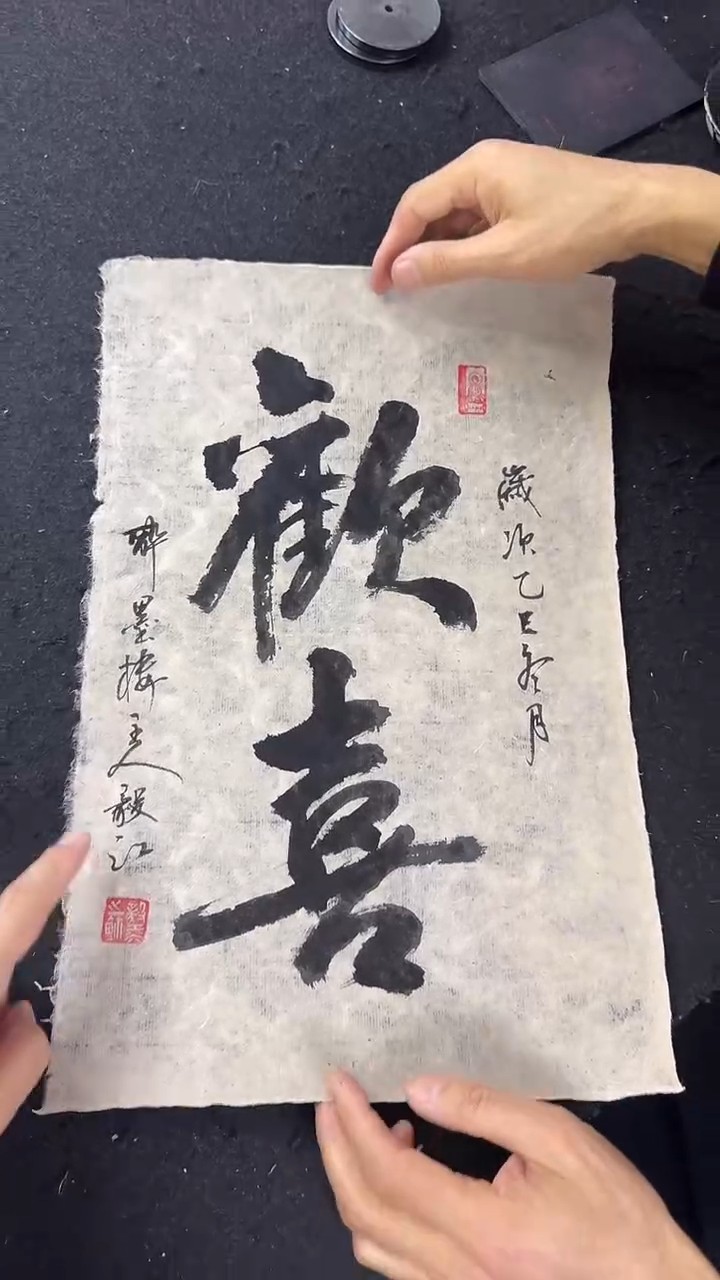 歲次乙巳冬月
歡喜
醉墨樓主人毅江